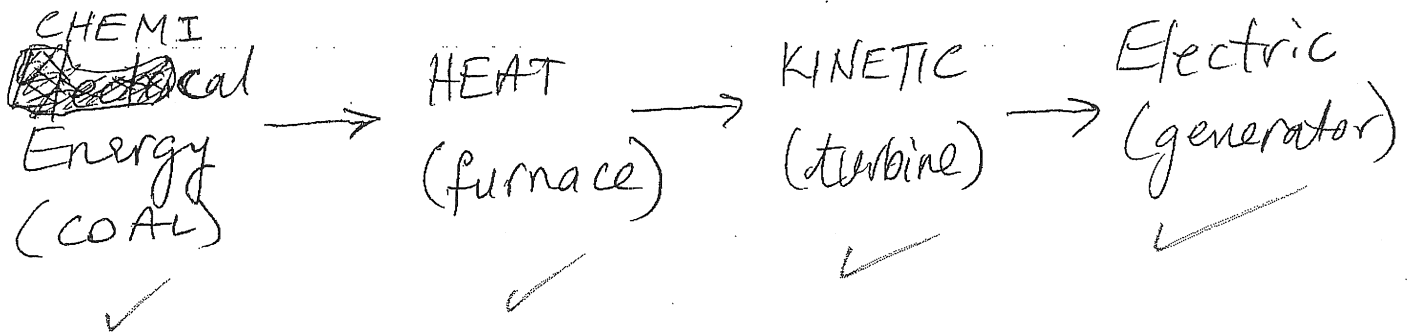 CHEMI
cal
Energy
(COAL)
HEAT
(furnace)
KINETIC
(turbine)
Electric
(generator)